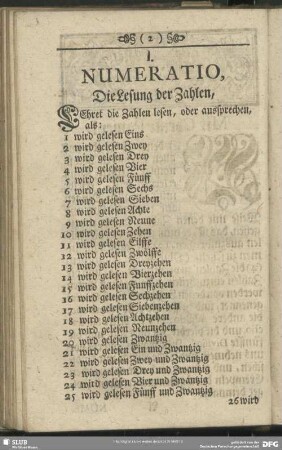 ( 2 )
I.
NUMERATIO,
Die Lesung der Zahlen,
LEhret die Zahlen lesen, oder aussprechen,
als:
1 wird gelesen Eins
2 wird gelesen Zwey
3 wird gelesen Drey
4 wird gelesen Vier
5 wird gelesen Fünff
6 wird gelesen Sechs
7 wird gelesen Sieben
8 wird gelesen Achte
9 wird gelesen Neune
10 wird gelesen Zehen
11 wird gelesen Eilffe
12 wird gelesen Zwölffe
13 wird gelesen Dreyzehen
14 wird gelesen Vierzehen
15 wird gelesen Funffzehen
16 wird gelesen Sechzehen
17 wird gelesen Siebenzehen
18 wird gelesen Achtzehen
19 wird gelesen Neunzehen
20 wird gelesen Zwantzig
21 wird gelesen Ein und Zwantzig
22 wird gelesen Zwey und Zwantzig
23 wird gelesen Drey und Zwantzig
24 wird gelesen Vier und Zwantzig
25 wird gelesen Fünff und Zwantzig
26 wird
SLUB
Wir führen Wissen.
gefördert von der
Deutschen Forschungsgemeinschaft
DFG